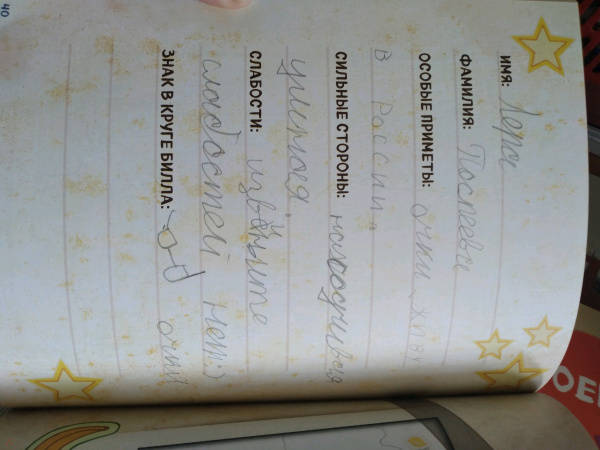 ИМЯ: Лера
ФАМИЛИЯ:
ОСОБЫЕ ПРИМЕТЫ: очки, живу
в России.
СИЛЬНЫЕ СТОРОНЫ:
умная.
СЛАБОСТИ: извените
слабостей нет:)
ЗНАК В КРУГЕ БИЛЛА: очки
40